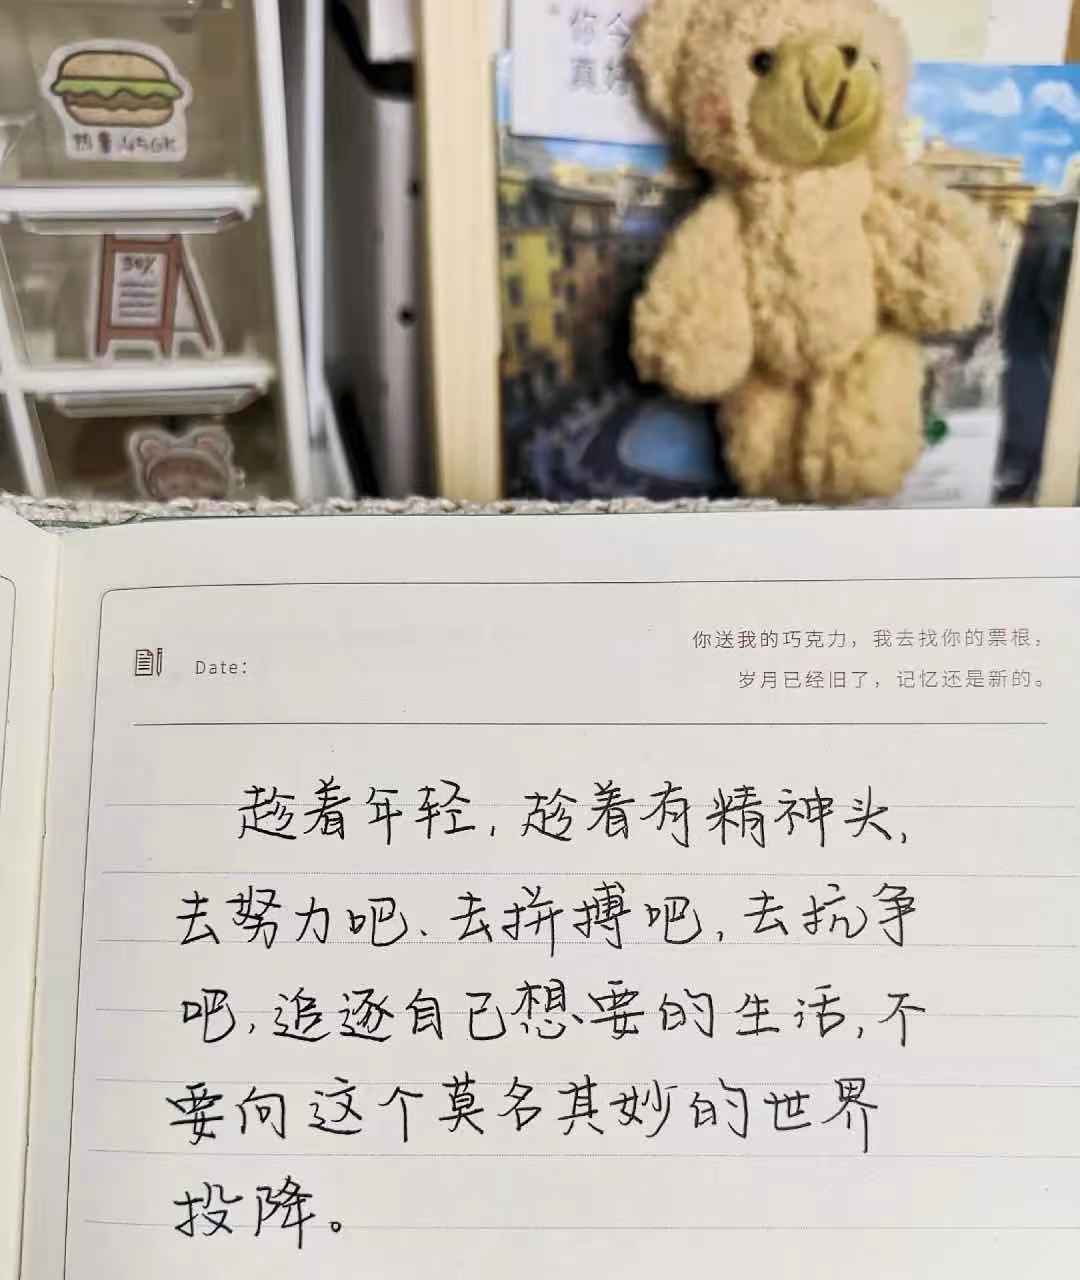 你今
真好
热量:456K
Date:
你送我的巧克力，我去找你的票根，
岁月已经旧了，记忆还是新的。
趁着年轻，趁着有精神头，
去努力吧、去拼搏吧，去抗争
吧，追逐自己想要的生活，不
要向这个莫名其妙的世界
投降。